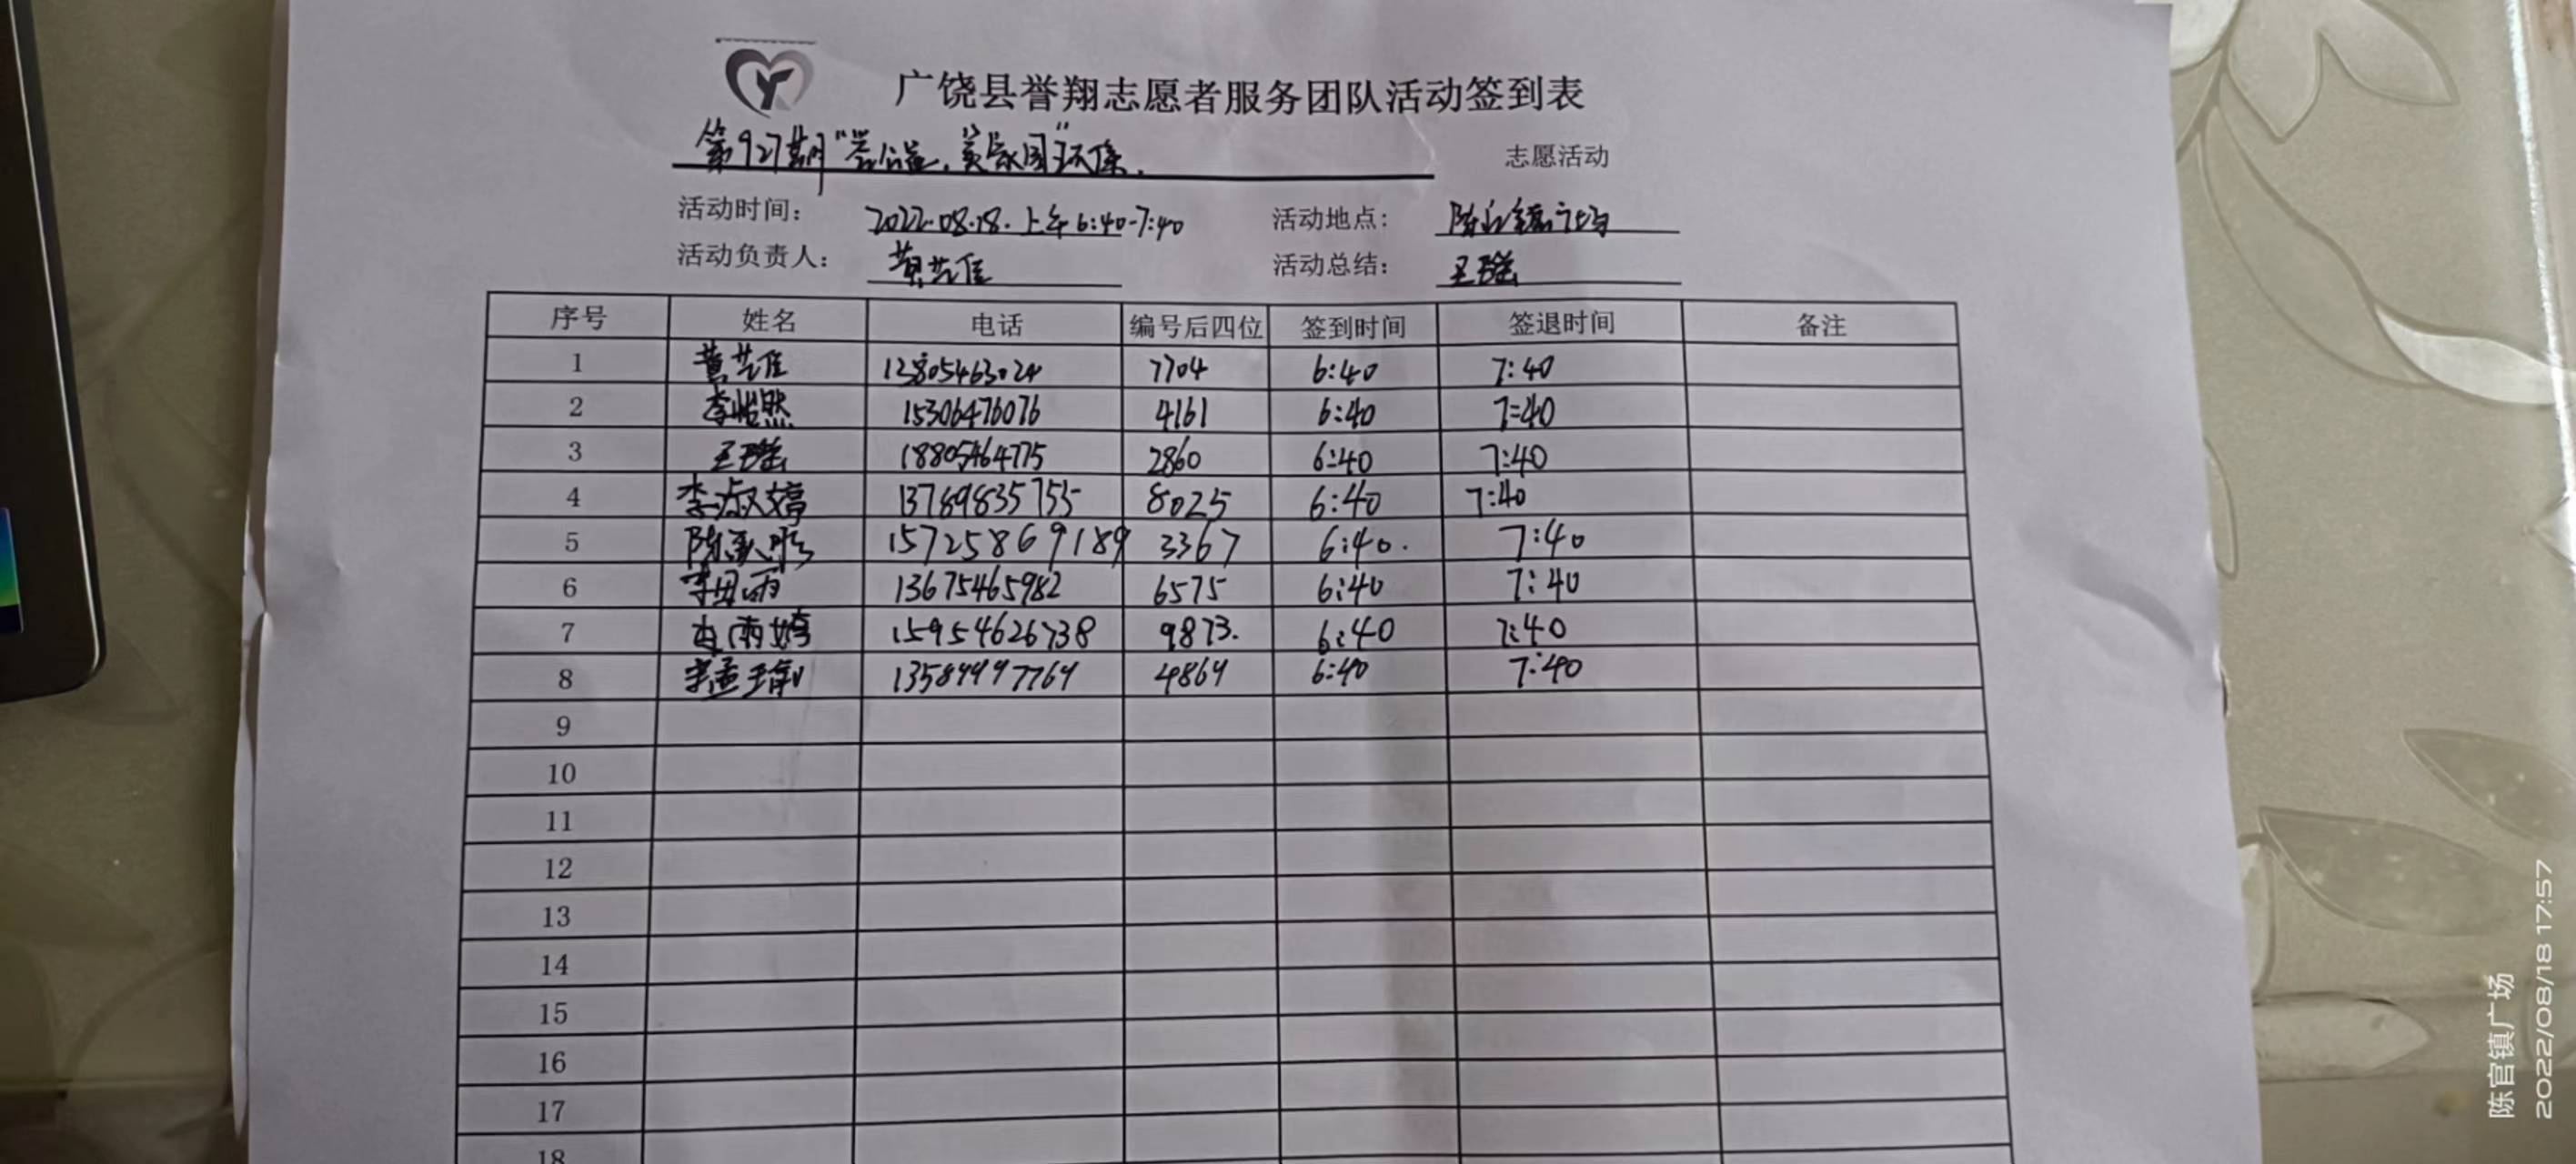 广饶县誉翔志愿者服务团队活动签到表
第927期“誉公益,美家园”环保. 志愿活动
活动时间: 2022.08.18.上午6:40-7:40 活动地点: 陈官镇广场
活动负责人: 黄艺佳 活动总结: 王瑶
序号 姓名 电话 编号后四位 签到时间 签退时间 备注
1 黄艺佳 13805463024 7704 6:40 7:40
2 李怡然 15306476076 4161 6:40 7:40
3 王瑶 18805464775 2860 6:40 7:40
4 李淑婷 13789835755 8025 6:40 7:40
5 15725869189 3367 6:40. 7:40
6 13675465982 6575 6:40 7:40
7 15954626738 9873. 6:40 7:40
8 4864 6:40 7:40
9
10
11
12
13
14
15
16
17
18
陈官镇广场
2022/08/18 17:57